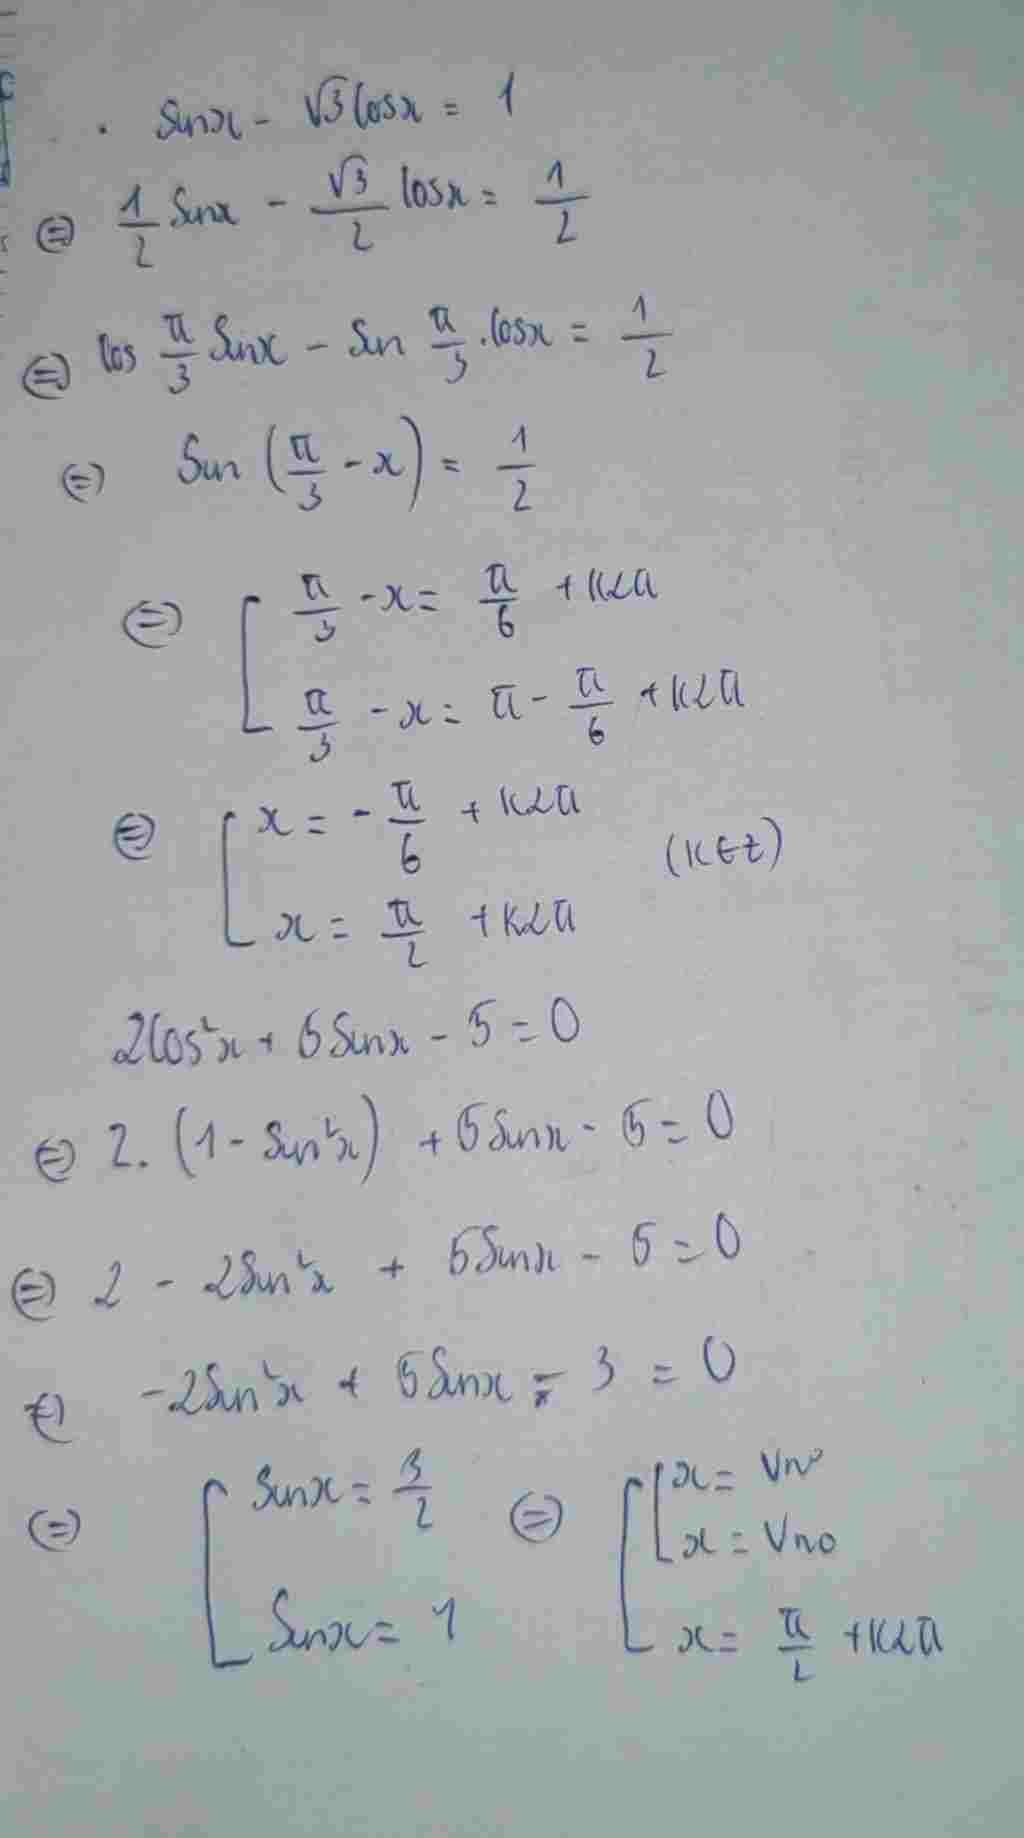 . sinx - √3 cosx = 1
⇔ 1/2 sinx - √3/2 cosx = 1/2
⇔ cos π/3 sinx - sin π/3 . cosx = 1/2
⇔ sin (π/3 - x) = 1/2
⇔ [ π/3 - x = π/6 + k2π
π/3 - x = π - π/6 + k2π
⇔ [ x = - π/6 + k2π
(k∈Z)
x = π/2 + k2π
2cos²x + 5sinx - 5 = 0
⇔ 2. (1 - sin²x) + 5sinx - 5 = 0
⇔ 2 - 2sin²x + 5sinx - 5 = 0
⇔ -2sin²x + 5sinx - 3 = 0
⇔ [ sinx = 3/2 ⇔ [ [ x = Vno
x = Vno
sinx = 1 x = π/2 + k2π